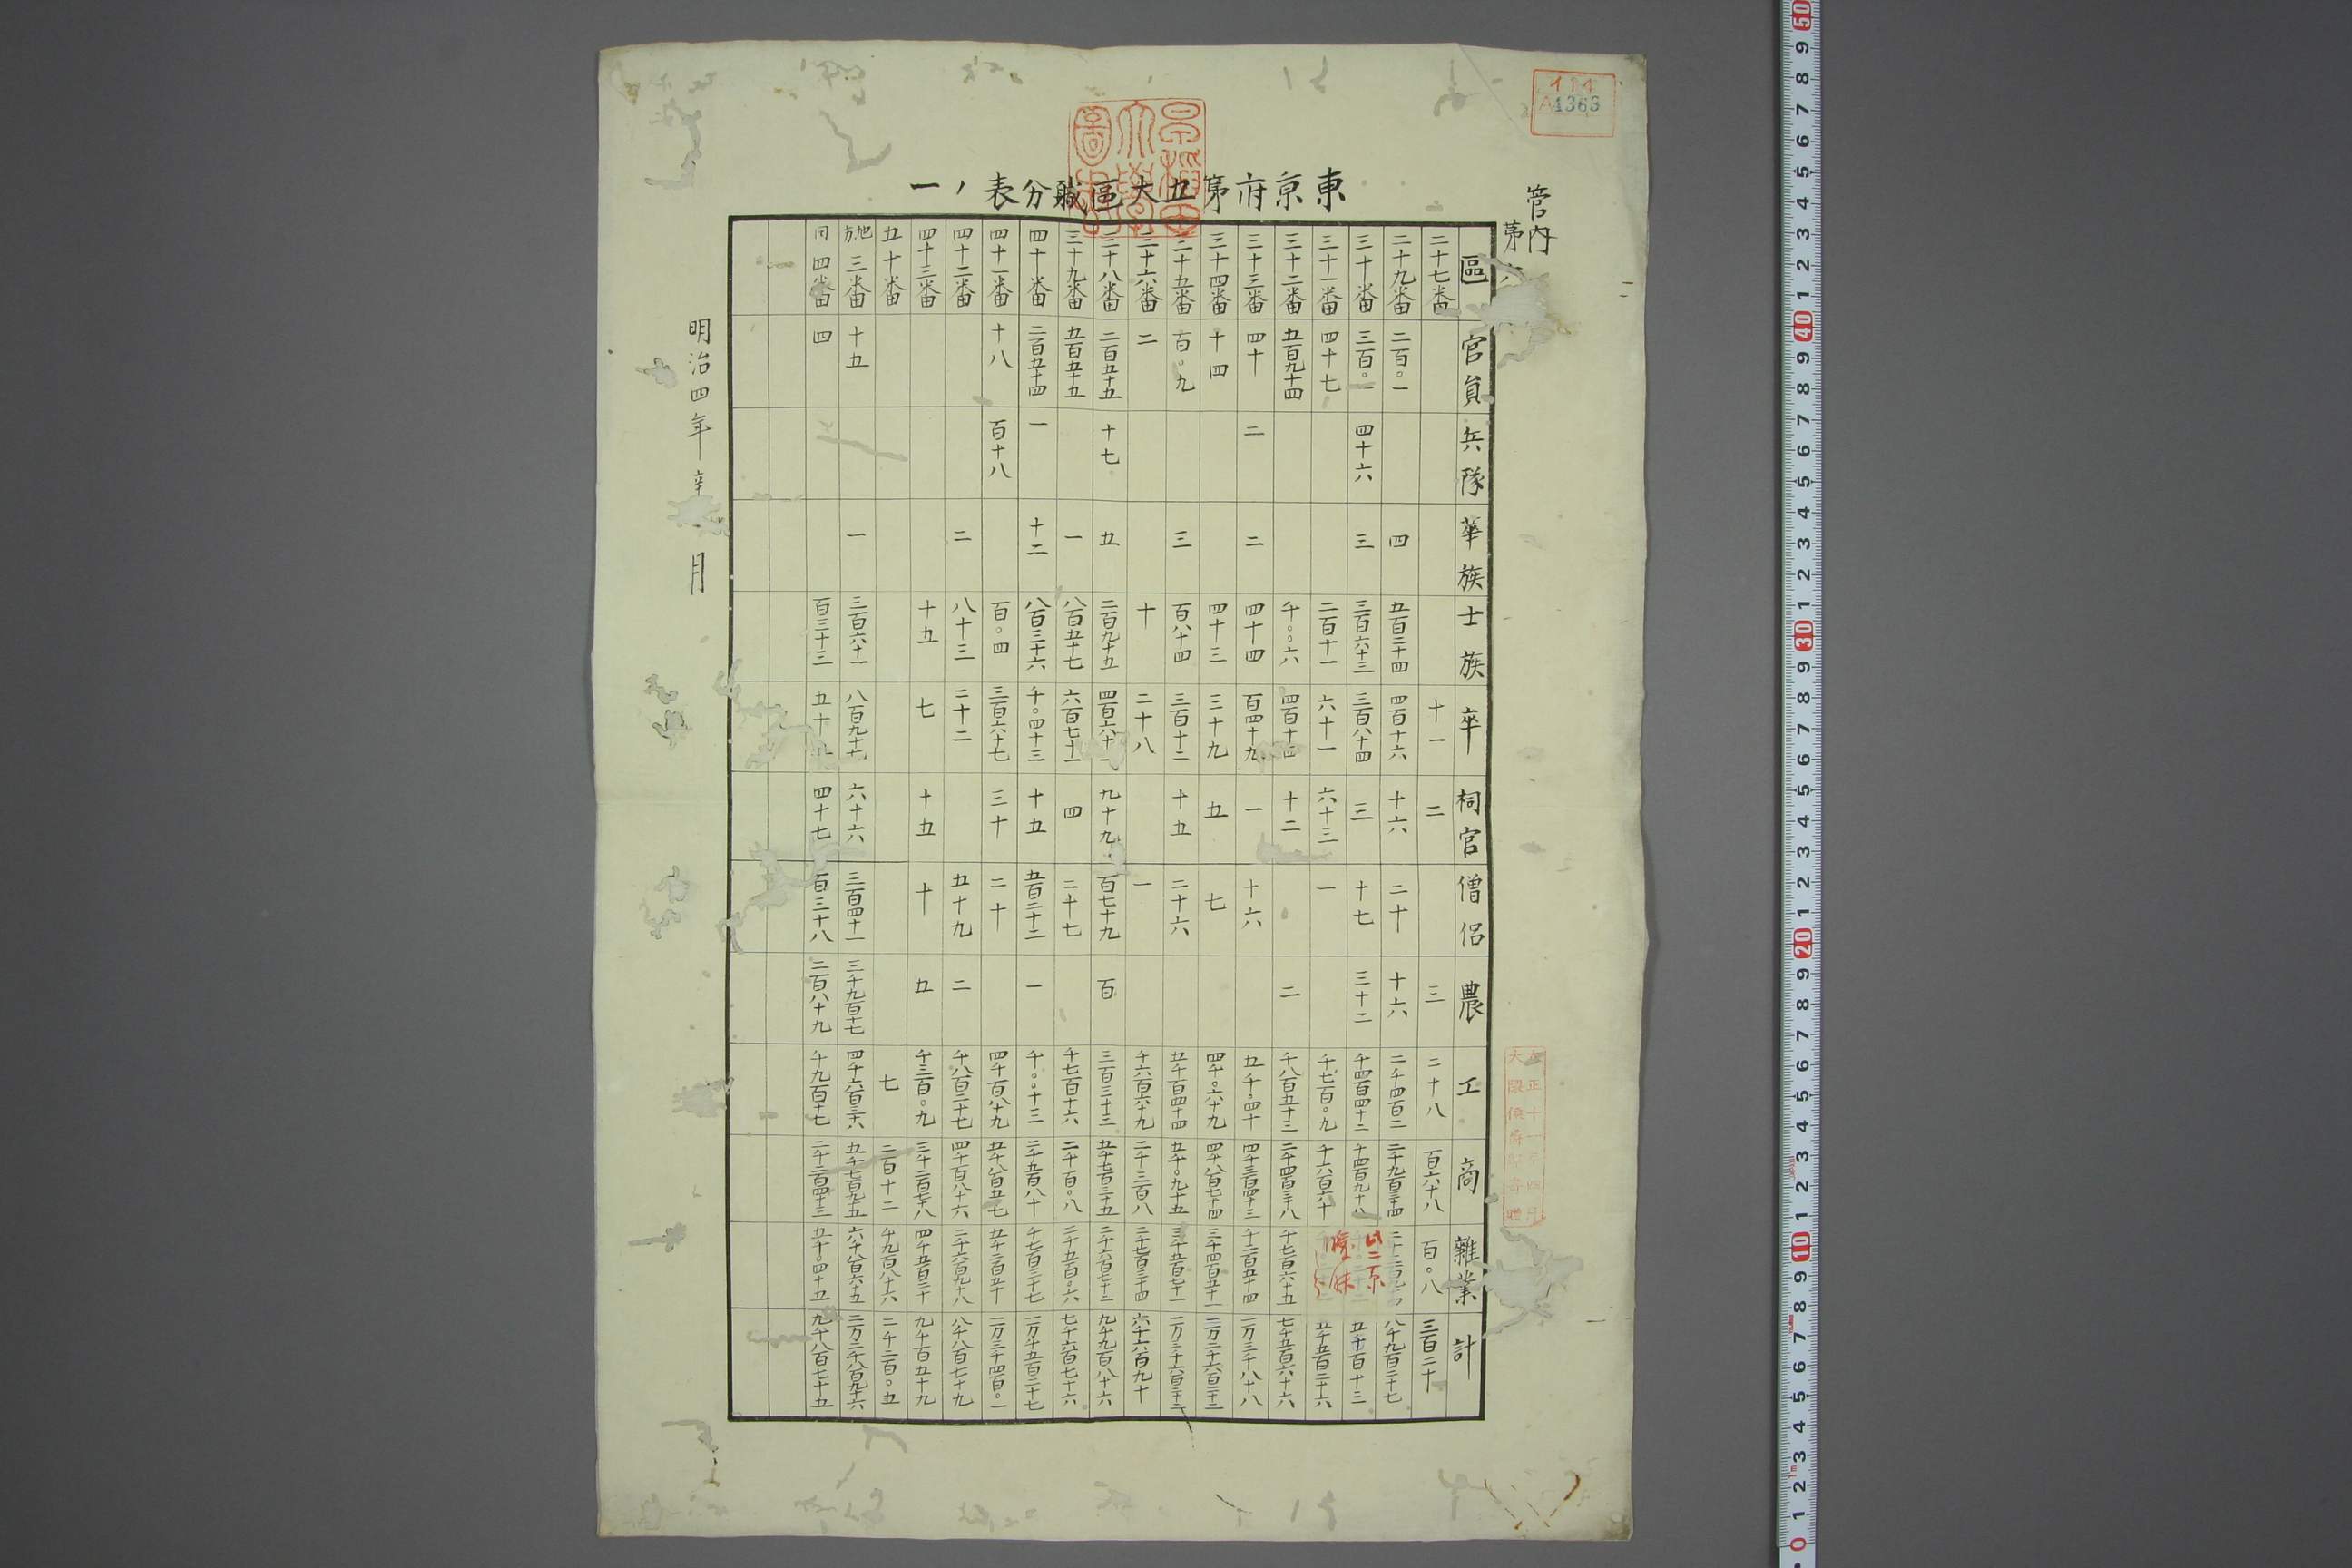 イ14
A4363
管内
第六
東京府第五大區職分表ノ一
區 官員 兵隊 華族 士族 卒 祠官 僧侶 農 工 商 雜業 計
二十七番 十一 二 三 二十八 百六十八 百〇八 三百二十
二十九番 二百〇一 四 五百二十四 四百十六 十六 二十 十六 二千四百二 八千九百二十七
三十番 三百〇一 四十六 三 三百六十三 三百八十四 三 十七 三十二 千四百四十二 千四百九十八 五千百十三
三十一番 四十七 二百十一 六十一 六十三 一 千七百〇九 千六百六十 五千五百二十六
三十二番 五百九十四 千〇〇六 四百十四 十二 二 千八百五十三 二千四百三十八 千七百六十五 七千五百六十六
三十三番 四十 二 二 四十四 百四十九 一 十六 五千〇四十 四千三百四十三 千二百五十四 一万三千八十八
三十四番 十四 四十三 三十九 五 七 四千〇六十九 四千八百七十四 三千四百五十一
三十五番 百〇九 三 百八十四 三百十二 十五 二十六 五千百四十四 五千〇九十五 三千五百七十一
三十六番 二 十 二十八 一 千六百六十九 二千三百八 二千七百三十四 六千六百九十
三十八番 二百五十五 十七 五 二百九十五 四百六十一 九十九 百七十九 百 三百三十三 五千七百三十五 二千六百七十三 九千九百八十六
三十九番 五百五十五 一 八百五十七 六百七十一 四 二十七 千七百十六 二千百〇八 二千五百〇六 七千六百七十六
四十番 二百五十四 一 十二 八百三十六 千〇四十三 十五 五百二十二 一 千〇〇十三 三千五百八十 千七百三十七 一万千五百二十七
四十一番 十八 百十八 百〇四 三百六十七 三十 二十 四千百八十九 五千八百五七 五千二百五十 一万三千四百〇一
四十二番 二 八十三 二十二 五十九 二 千八百二十七 四千百八十六 二千六百九十八 八千八百七十九
四十三番 十五 七 十五 十 五 千三百〇九 三千二百七十八 四千五百二十 九千百五十九
五十番 七 二百十二 千九百八十六 二千二百〇五
地方 三番 十五 一 三百六十一 八百九十七 六十六 三百四十一 三千九百十七 四千六百三十六 五千七百九十五 六千八百六十五 二万二千八百九十六
同 四番 四 百三十三 五十 四十七 百三十八 二百八十九 千九百十七 二千二百四十三 五千〇四十五 九千八百七十五
明治四年辛 月